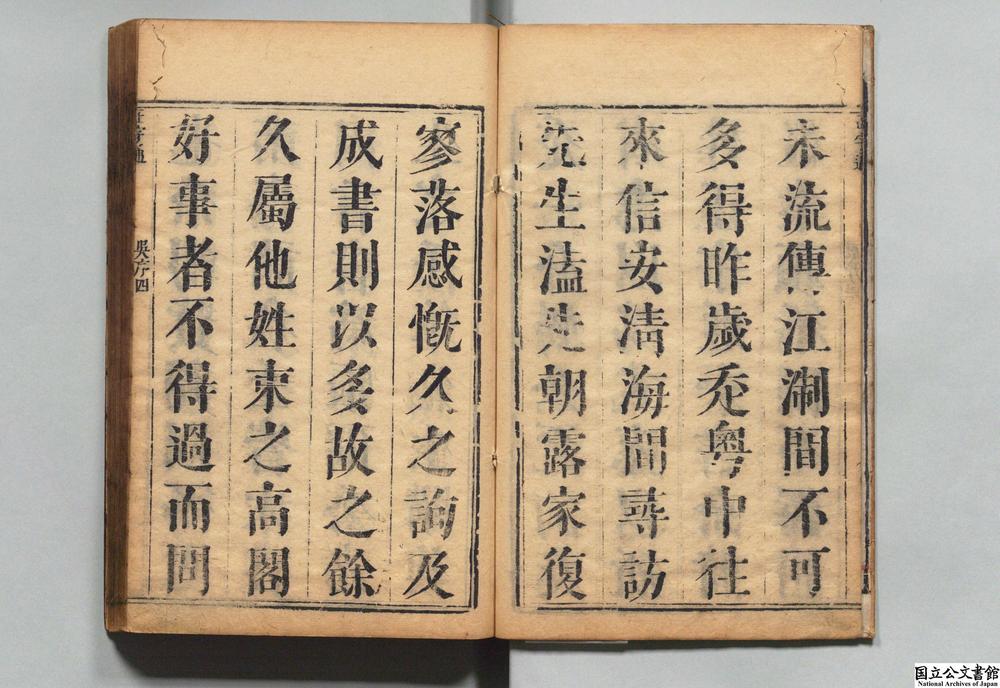 未流傳江淛間不可
多得昨歲兊粤中往
來信安淸海間尋訪
先生溘先朝露家復
寥落感慨久之詢及
成書則以多故之餘
久屬他姓束之高閣
好事者不得過而問
吳序四
国立公文書館
National Archives of Japan